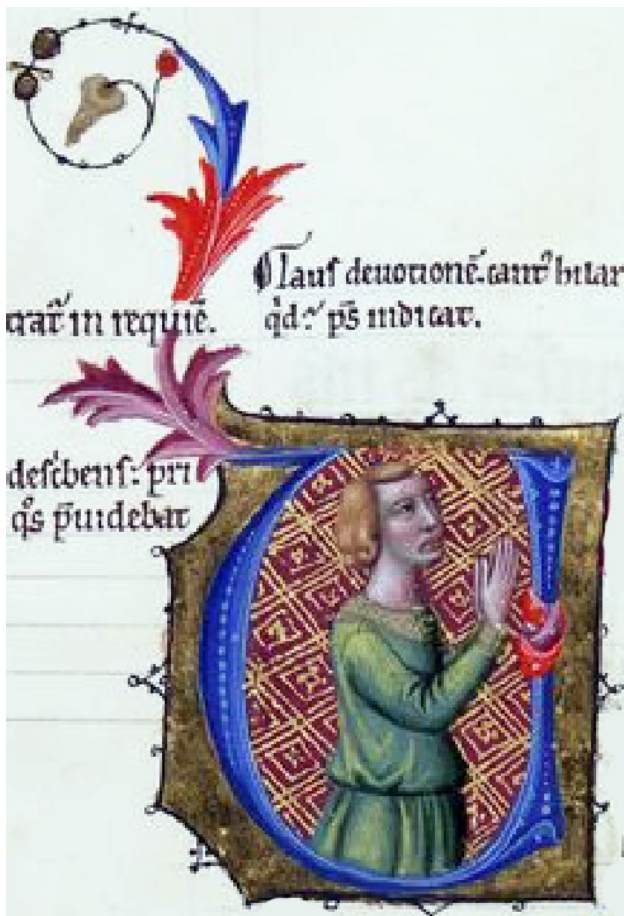 laus deuotionē. cantꝰ hilar
trat᷑ in requiē.
qd᷑ p̄s indicat.
describens: pri
qͦs p̄uidebat